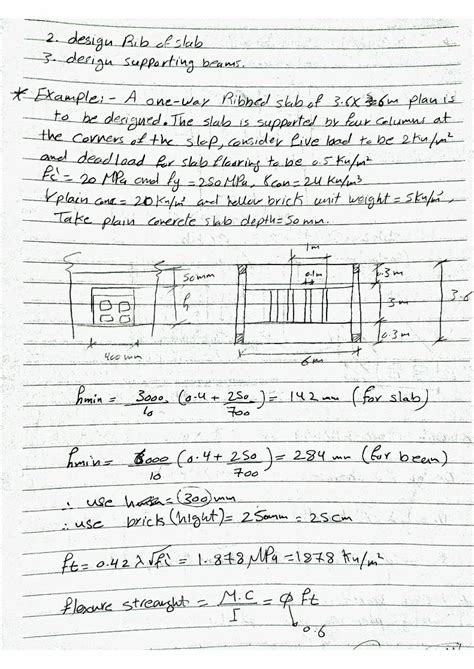 2. design Rib of slab
3. design supporting beams.
* Example:- A one-way Ribbed slab of 3.6 x 6m plan is
to be designed. The slab is supported by four columns at
the corners of the slap, consider five load to be 2 kN/m²
and dead load for slab flooring to be 0.5 kN/m²
fc' = 20 MPa and fy = 250 MPa, γcon = 24 kN/m³
γ plain conc = 20 kN/m³ and hollow brick unit weight = 5 kN/m³,
Take plain concrete slab depth = 50 mm.
1m
50mm
h
400 mm
0.1m
0.3 m
3m
0.3 m
3.6
6m
hmin = 3000/10 (0.4 + 250/700) = 142 mm (for slab)
hmin = 6000/10 (0.4 + 250/700) = 284 mm (for beam)
∴ use h = (300) mm
∴ use brick (hight) = 250mm = 25cm
ft = 0.42 λ √fc' = 1.878 MPa = 1878 kN/m²
flexure streaught = M.C/I = φ ft
0.6